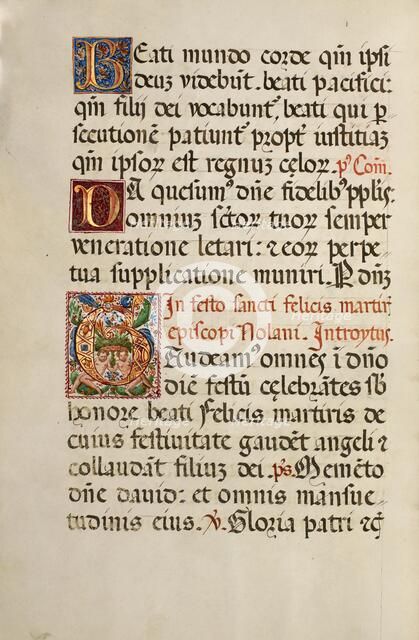 Beati mundo corde qm̄ ipsi
deuȝ videbūt. beati pacifici:
qm̄ filij dei vocabunt᷒, beati qui ꝑ
secutionē patiunt᷒ propt᷒ iustitiaȝ
qm̄ ipsoꝝ est regnuȝ celoꝝ. p᷒ Com̄.
DA quesum᷒ dn̄e fidelib᷒ pp̄lis.
omniuȝ sctoꝝ tuoꝝ semper
veneratione letari: ⁊ eoꝝ perpe
tua supplicatione muniri. P dn̄ȝ
In festo sancti felicis martir᷒
episcopi Nolani. Introytus.
GEudeam᷒ omnēs ī dn̄o
diē festū celebrātes sb̄
honore beati Felicis martiris de
cuius festiuitate gaudēt angeli ⁊
collaudāt filiuȝ dei. ps̄. Memēto
dn̄e dauid: et omnis mansue
tudinis eius. ℣. Gloria patri ⁊c̄